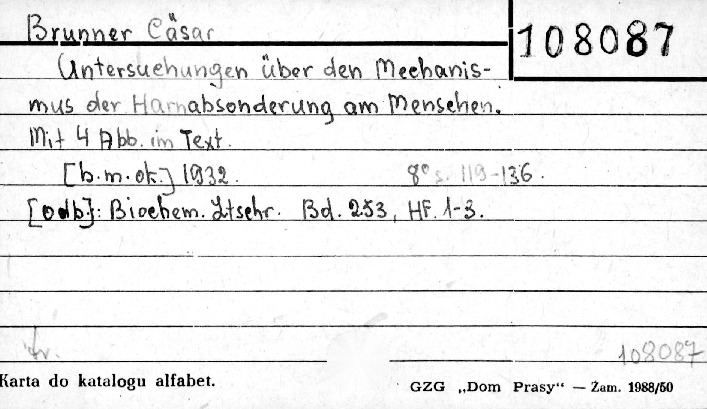 Brunner Cäsar
108087
Untersuchungen über den Mechanis-
mus der Harnabsonderung am Menschen.
Mit 4 Abb. im Text.
[b.m.ok.] 1932. 8° s. 119-136.
[odb]: Biochem. Ztschr. Bd. 253, Hf. 1-3.
108087
Karta do katalogu alfabet.
GZG „Dom Prasy“ — Zam. 1988/50